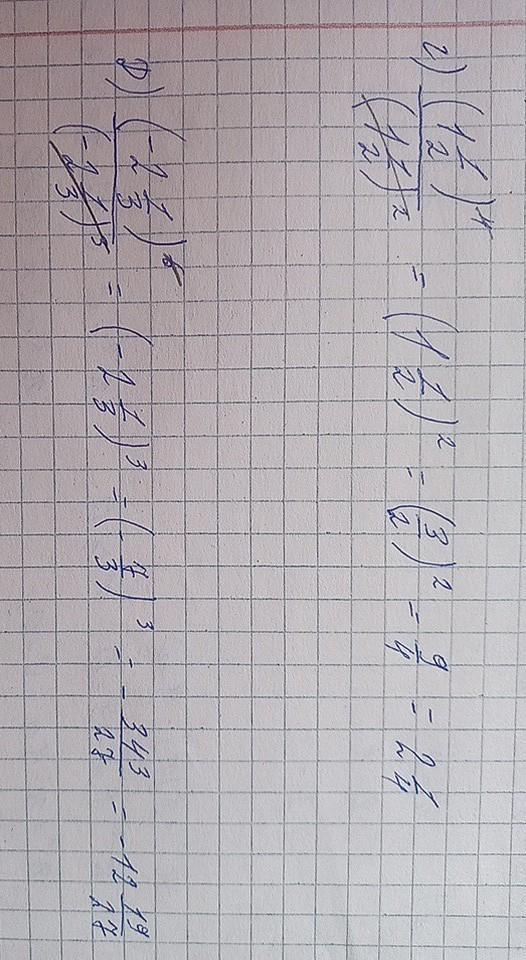 г) (1 1/2)^4 / (1 1/2)^2 = (1 1/2)^2 = (3/2)^2 = 9/4 = 2 1/4
д) (-2 1/3)^6 / (-2 1/3)^3 = (-2 1/3)^3 = (-7/3)^3 = -343/27 = -12 19/27